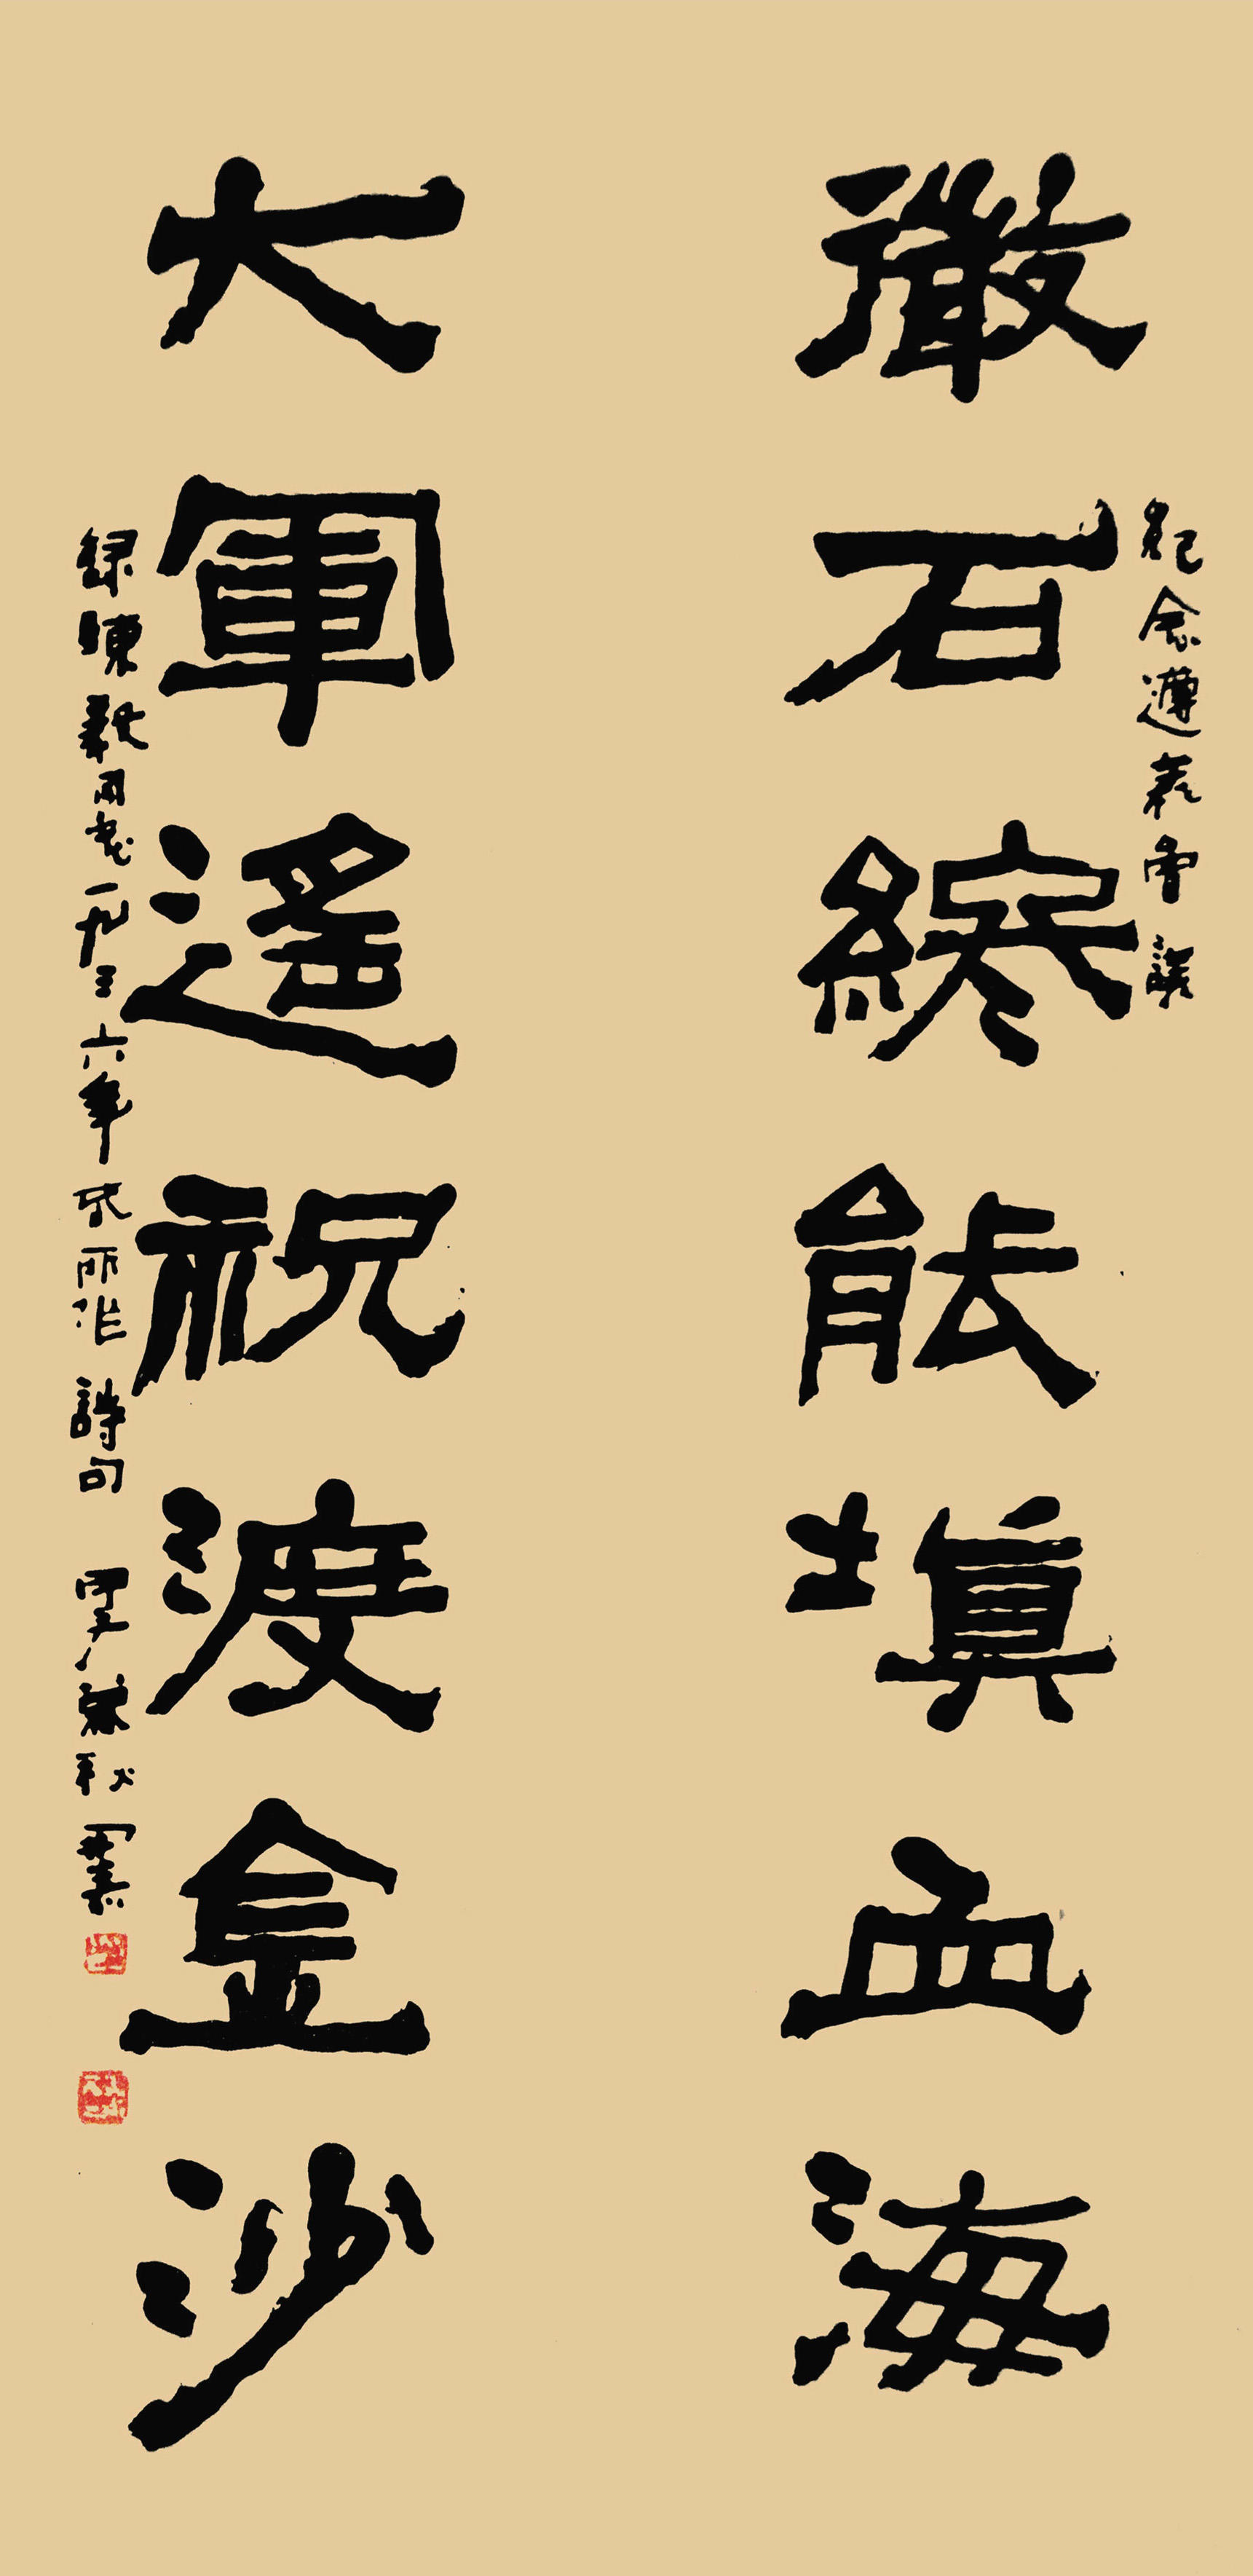 紀念遵義會議
微石終能填血海
大軍遙祝渡金沙
錄陳毅同志一九三六年所作詩句